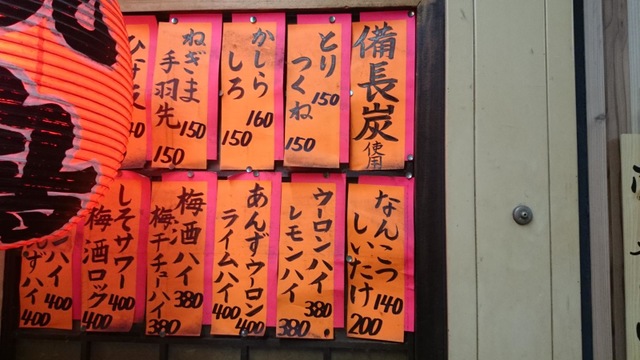 備長炭
使用
とり 150
つくね 150
かしら 160
しろ 150
ねぎま 150
手羽先 150
なんこつ 140
しいたけ 200
ウーロンハイ 380
レモンハイ 380
あんずウーロン 400
ライムハイ 400
梅酒ハイ 380
梅干チューハイ 380
しそサワー 400
梅酒ロック 400